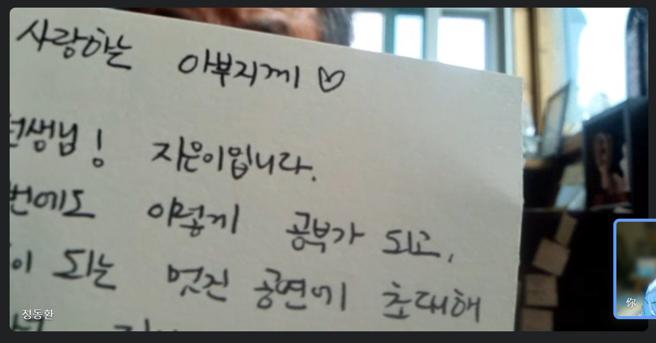 사랑하는 아부지께 ♡
선생님! 지은이입니다.
번에도 이렇게 공부가 되고,
이 되는 멋진 공연에 초대해
정동환
你